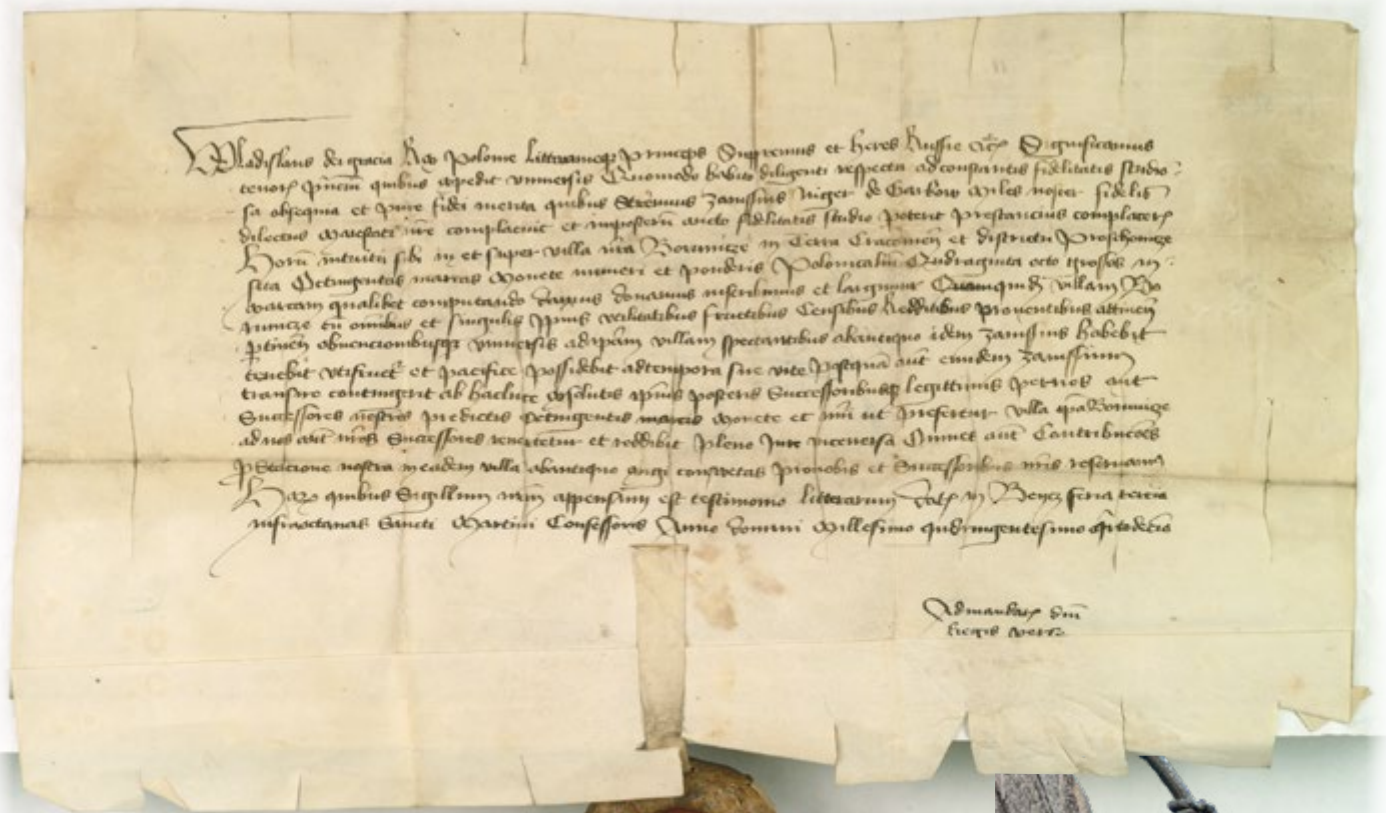 Wladislaus dei gracia Rex Polonie Littwanieque Princeps Supremus et heres Russie etc Significamus
tenore pncm quibus expedit vniuersis Quomodo habito diligenti respectu ad constantis fidelitatis studio
sa obsequia et pure fidei merita quibus Strenuus Zauissius niger de Garbow Miles noster fidelis
dilectus Maiestati nre complacuit et inposterum aucto fidelitatis studio poterit prestancius complacere
Horum intuitu sibi in et super villa nra in Terra Cracouien et districtu Proschouicze
sita Octingentas marcas Monete numeri et ponderis Polonicalium Qudraginta octo grossos in
marcam quamlibet computando damus donamus inscribimus et largimur Quamquidem villam
cum omnibus et singulis ipius vtilitatibus fructibus Censibus Redditibus prouentibus attinen
ptinen obuencionibusque vniuersis ad ipam villam spectantibus abantiquo idem Zauissius habebit
tenebit vtifruet et pacifice possidebit ad tempora sue vite Postquam aut eundem Zauissium
transire contingerit ab hac luce solutis ipius posteris Successoribusque legittimis per nos aut
Successores nostros predictis Octingentis marcis Monete et nui ut prefertur villa ipa
ad nos aut nros Successores reuertetur et reddibit pleno Jure viceuersa aut Contribucoes
Stacione nostra in eadem villa abantiquo consuetas pro nobis et Successoribus nris reseruam
Harum quibus Sigillum nrm appensum est testimonio litterarum Dat in Byecz feria tercia
infra octauas Sancti Martini Confessoris Anno domini Millesimo qudringentesimo
Ad mandatum dni
Regis